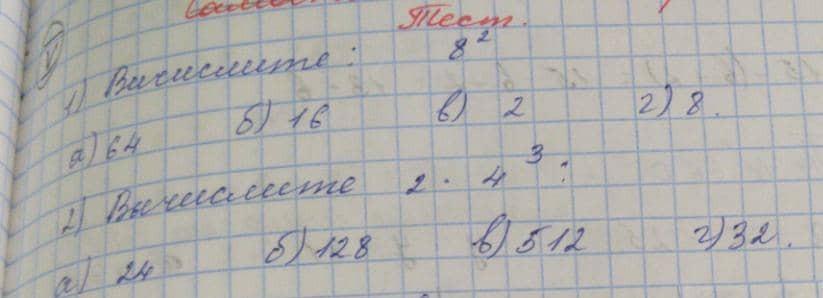 Тест.
1) Вичислите: 8²
а) 64 б) 16 в) 2 г) 8.
2) Вычислите 2 · 4³:
а) 24 б) 128 в) 512 г) 32.